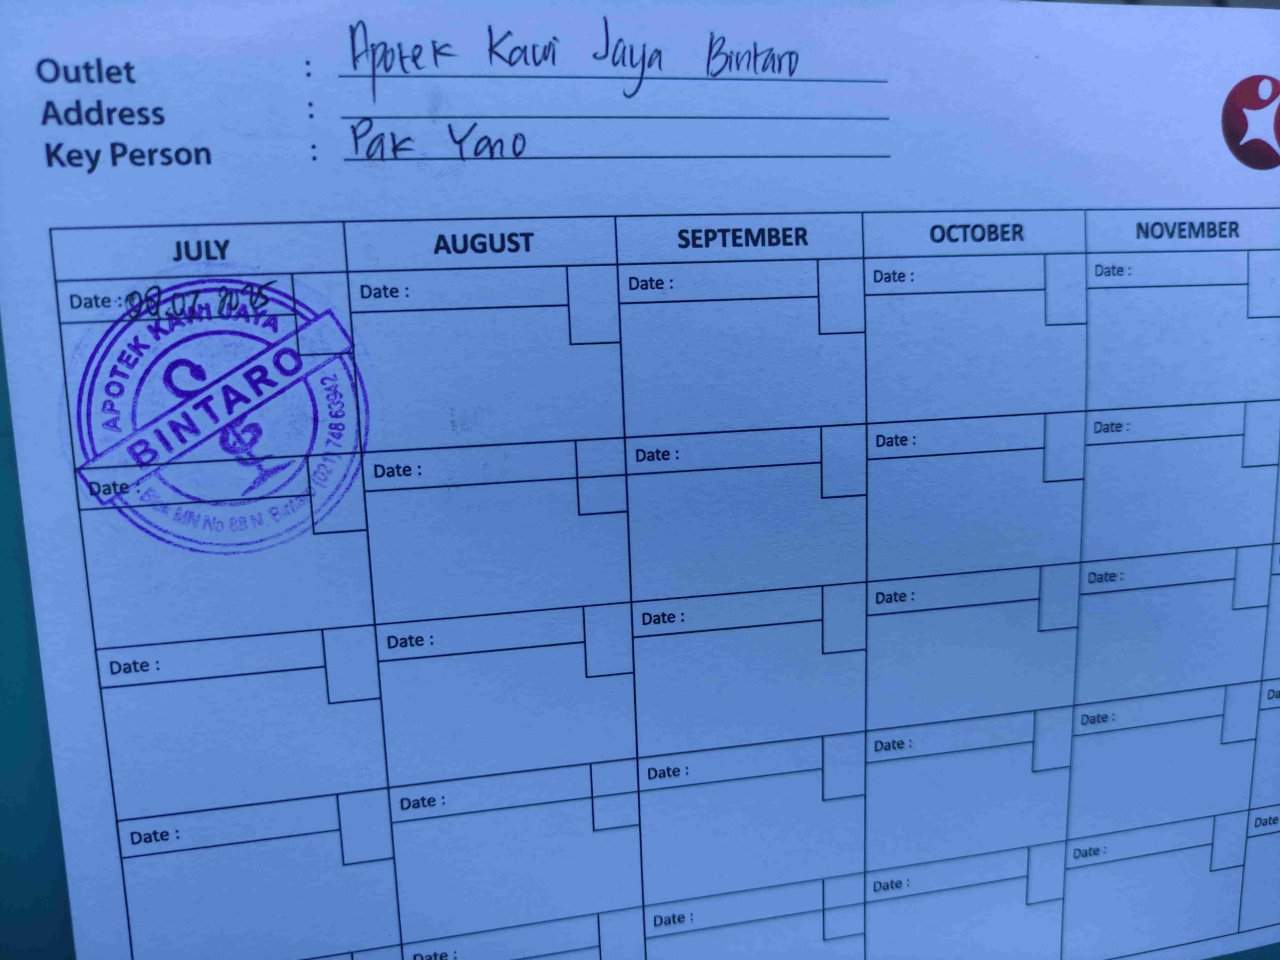 Outlet : Apotek Kawi Jaya Bintaro
Address :
Key Person : Pak Yono
JULY AUGUST SEPTEMBER OCTOBER NOVEMBER
Date : 09.07.2025 Date : Date : Date : Date :
APOTEK KAWI JAYA
BINTARO
(021) 748 63942
MN No 88 N.
Date : Date : Date : Date : Date :
Date : Date : Date : Date : Date :
Date : Date : Date : Date : Date :
Date : Date : Date : Date :